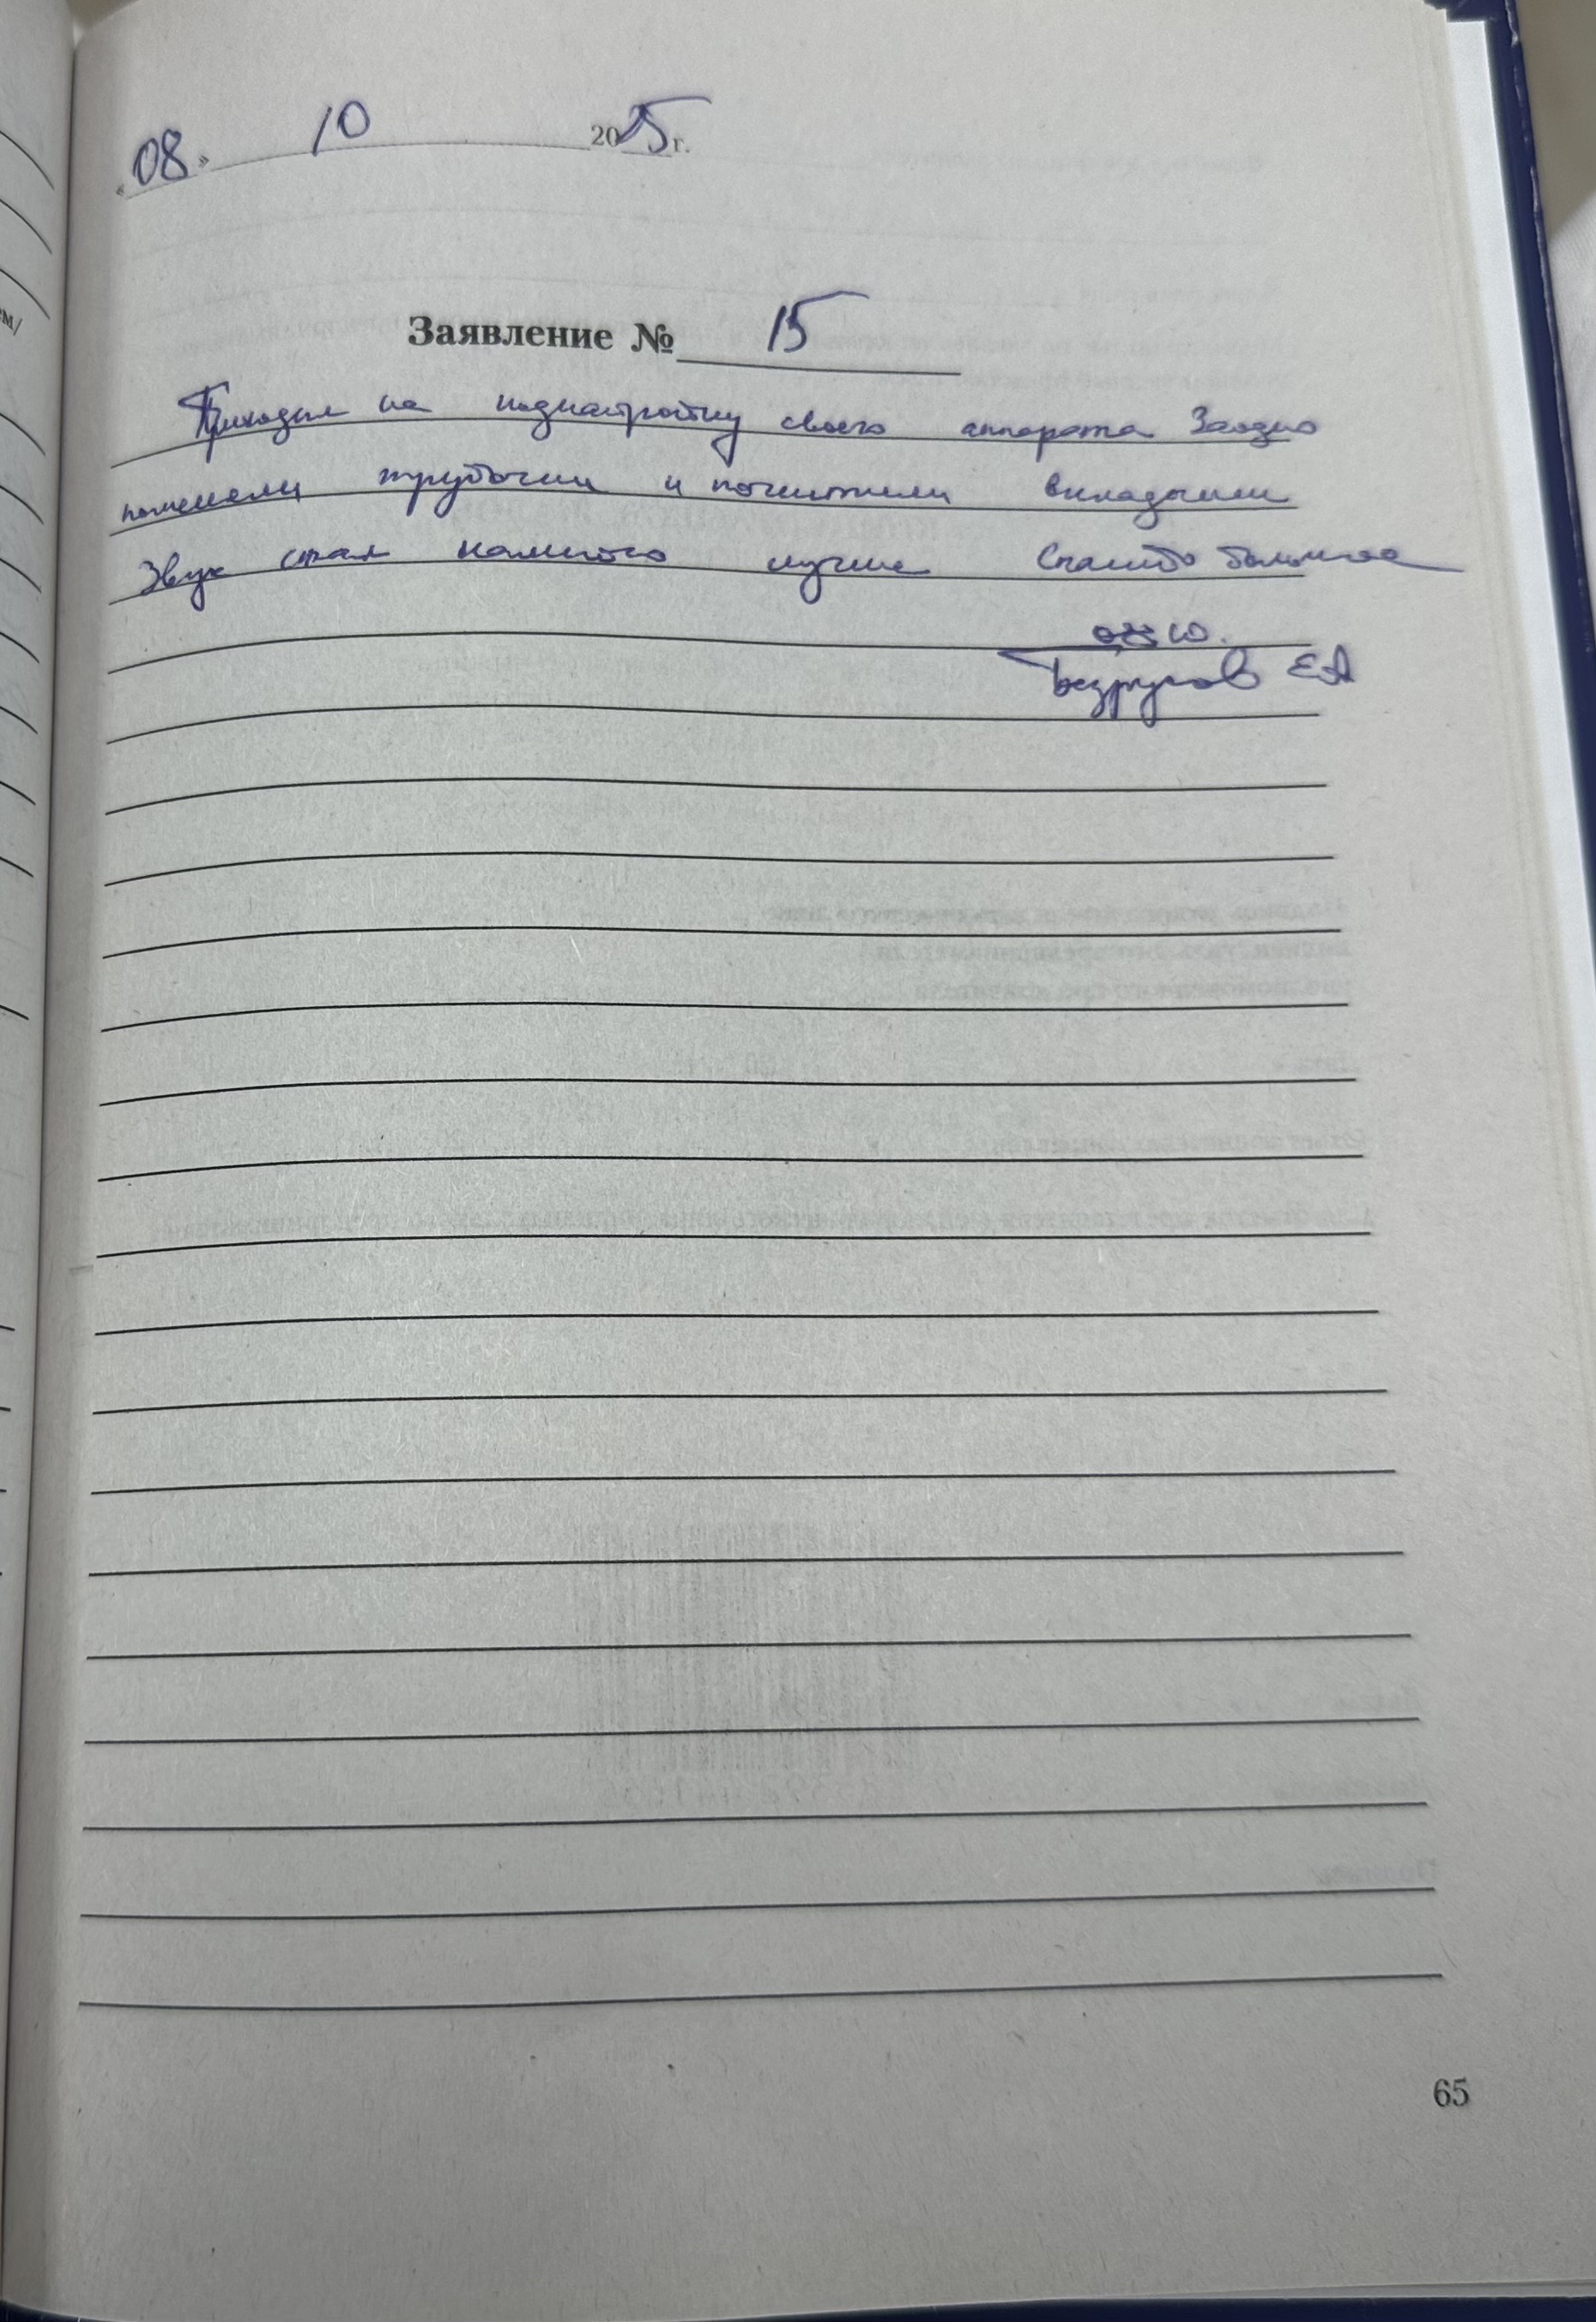 «08» 10 2025 г.
Заявление № 15
Приходил на поднастройку своего аппарата Заодно
поменяли трубочки и почистили вкладыши
Звук стал намного лучше Спасибо большое
Безруков ЕА
65